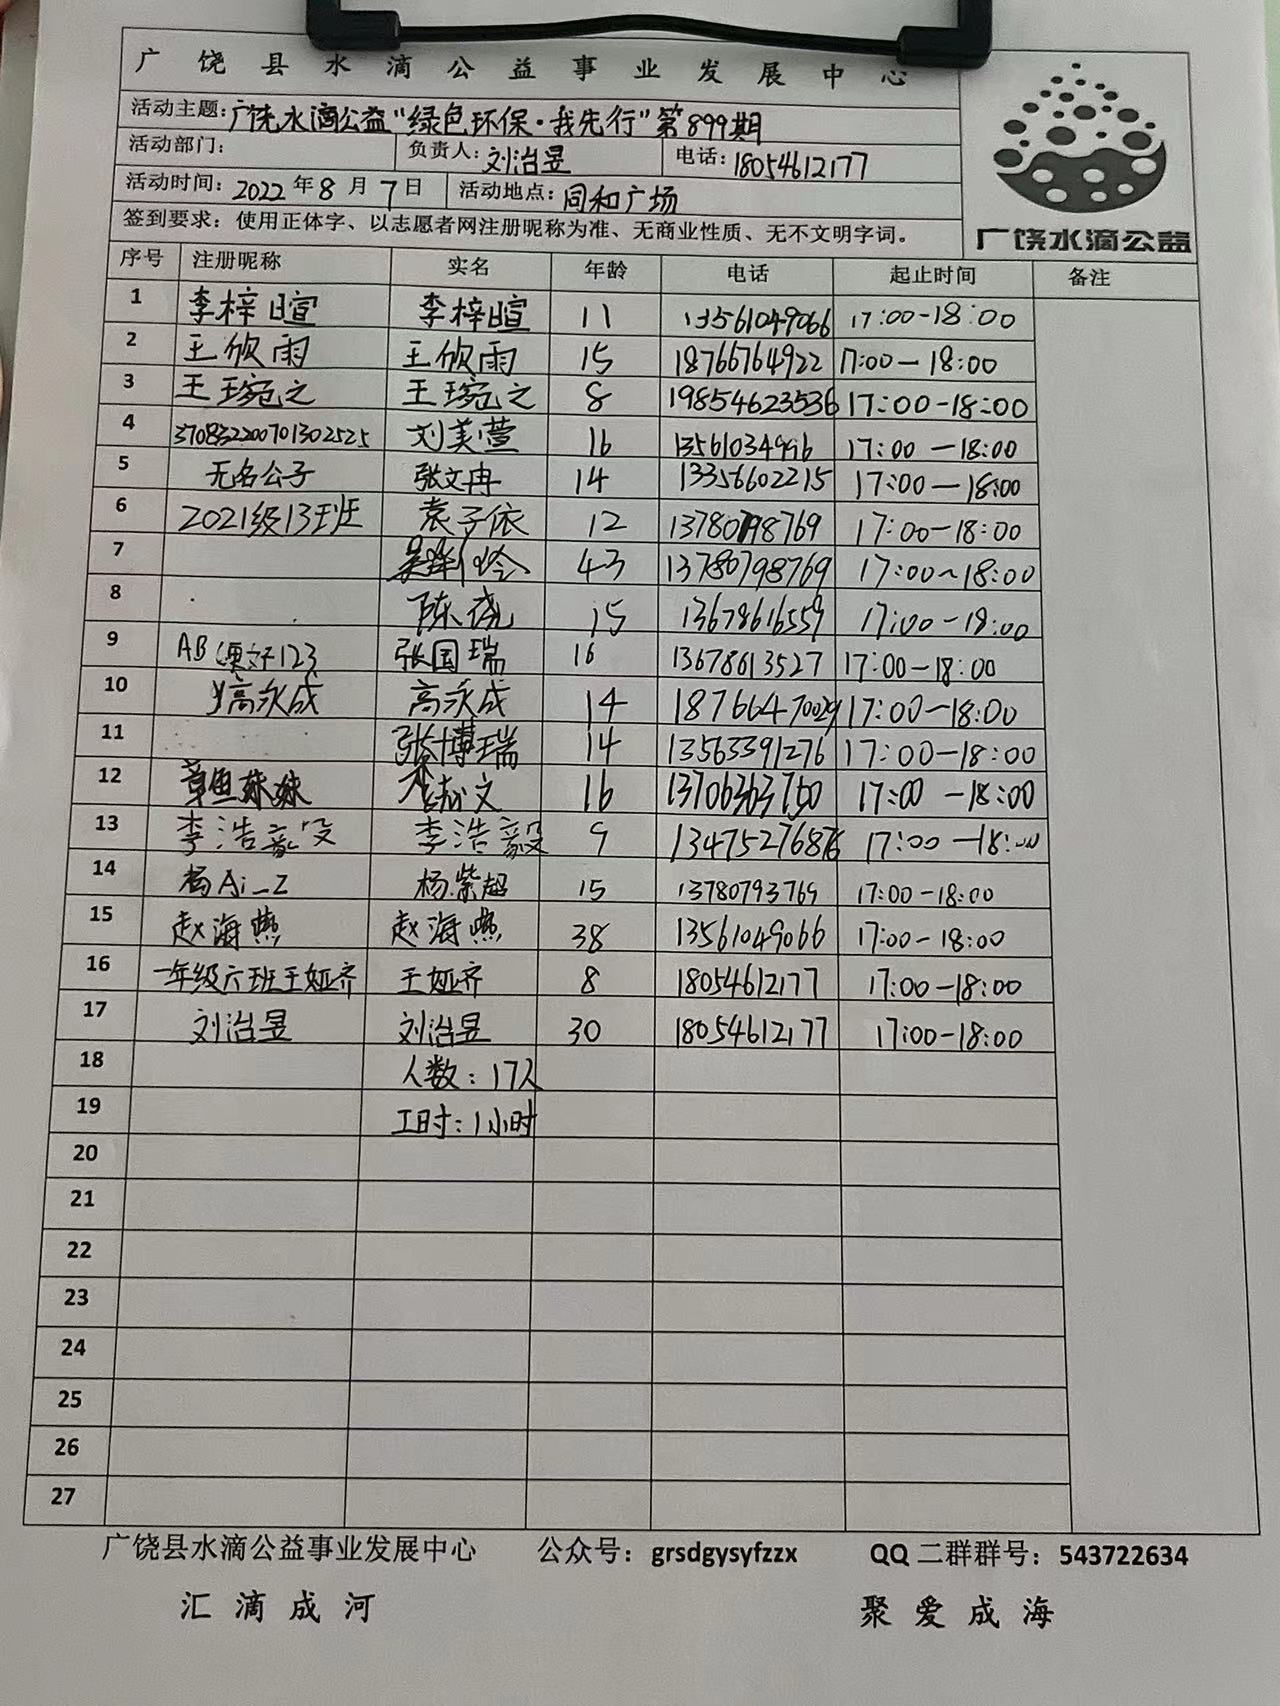 广饶县水滴公益事业发展中心
活动主题:广饶水滴公益“绿色环保·我先行”第899期
活动部门: 负责人:刘治昱 电话:18054612177
活动时间:2022年8月7日 活动地点:同和广场
签到要求:使用正体字、以志愿者网注册昵称为准、无商业性质、无不文明字词。
广饶水滴公益
序号 注册昵称 实名 年龄 电话 起止时间 备注
1 李梓暄 李梓暄 11 13561049066 17:00-18:00
2 王欣雨 王欣雨 15 18766764922 17:00-18:00
3 王琬之 王琬之 8 19854623536 17:00-18:00
4 370832200701302525 刘美萱 16 13561034996 17:00-18:00
5 无名公子 张文冉 14 13356602215 17:00-18:00
6 2021级13班 袁子依 12 13780798769 17:00-18:00
7 43 13780798769 17:00~18:00
8 陈饶 15 13678616559 17:00-18:00
9 张国瑞 16 13678613527 17:00-18:00
10 高永成 14 18766470029 17:00-18:00
11 张博瑞 14 13563391276 17:00-18:00
12 16 13706363750 17:00-18:00
13 李浩毅 李浩毅 9 13475276876 17:00-18:00
14 杨Ai_Z 杨紫超 15 13780793769 17:00-18:00
15 赵海燕 赵海燕 38 13561049066 17:00-18:00
16 一年级六班王娅齐 王娅齐 8 18054612177 17:00-18:00
17 刘治昱 刘治昱 30 18054612177 17:00-18:00
18 人数:17人
19 工时:1小时
20
21
22
23
24
25
26
27
广饶县水滴公益事业发展中心 公众号:grsdgysyfzzx QQ二群群号:543722634
汇滴成河 聚爱成海